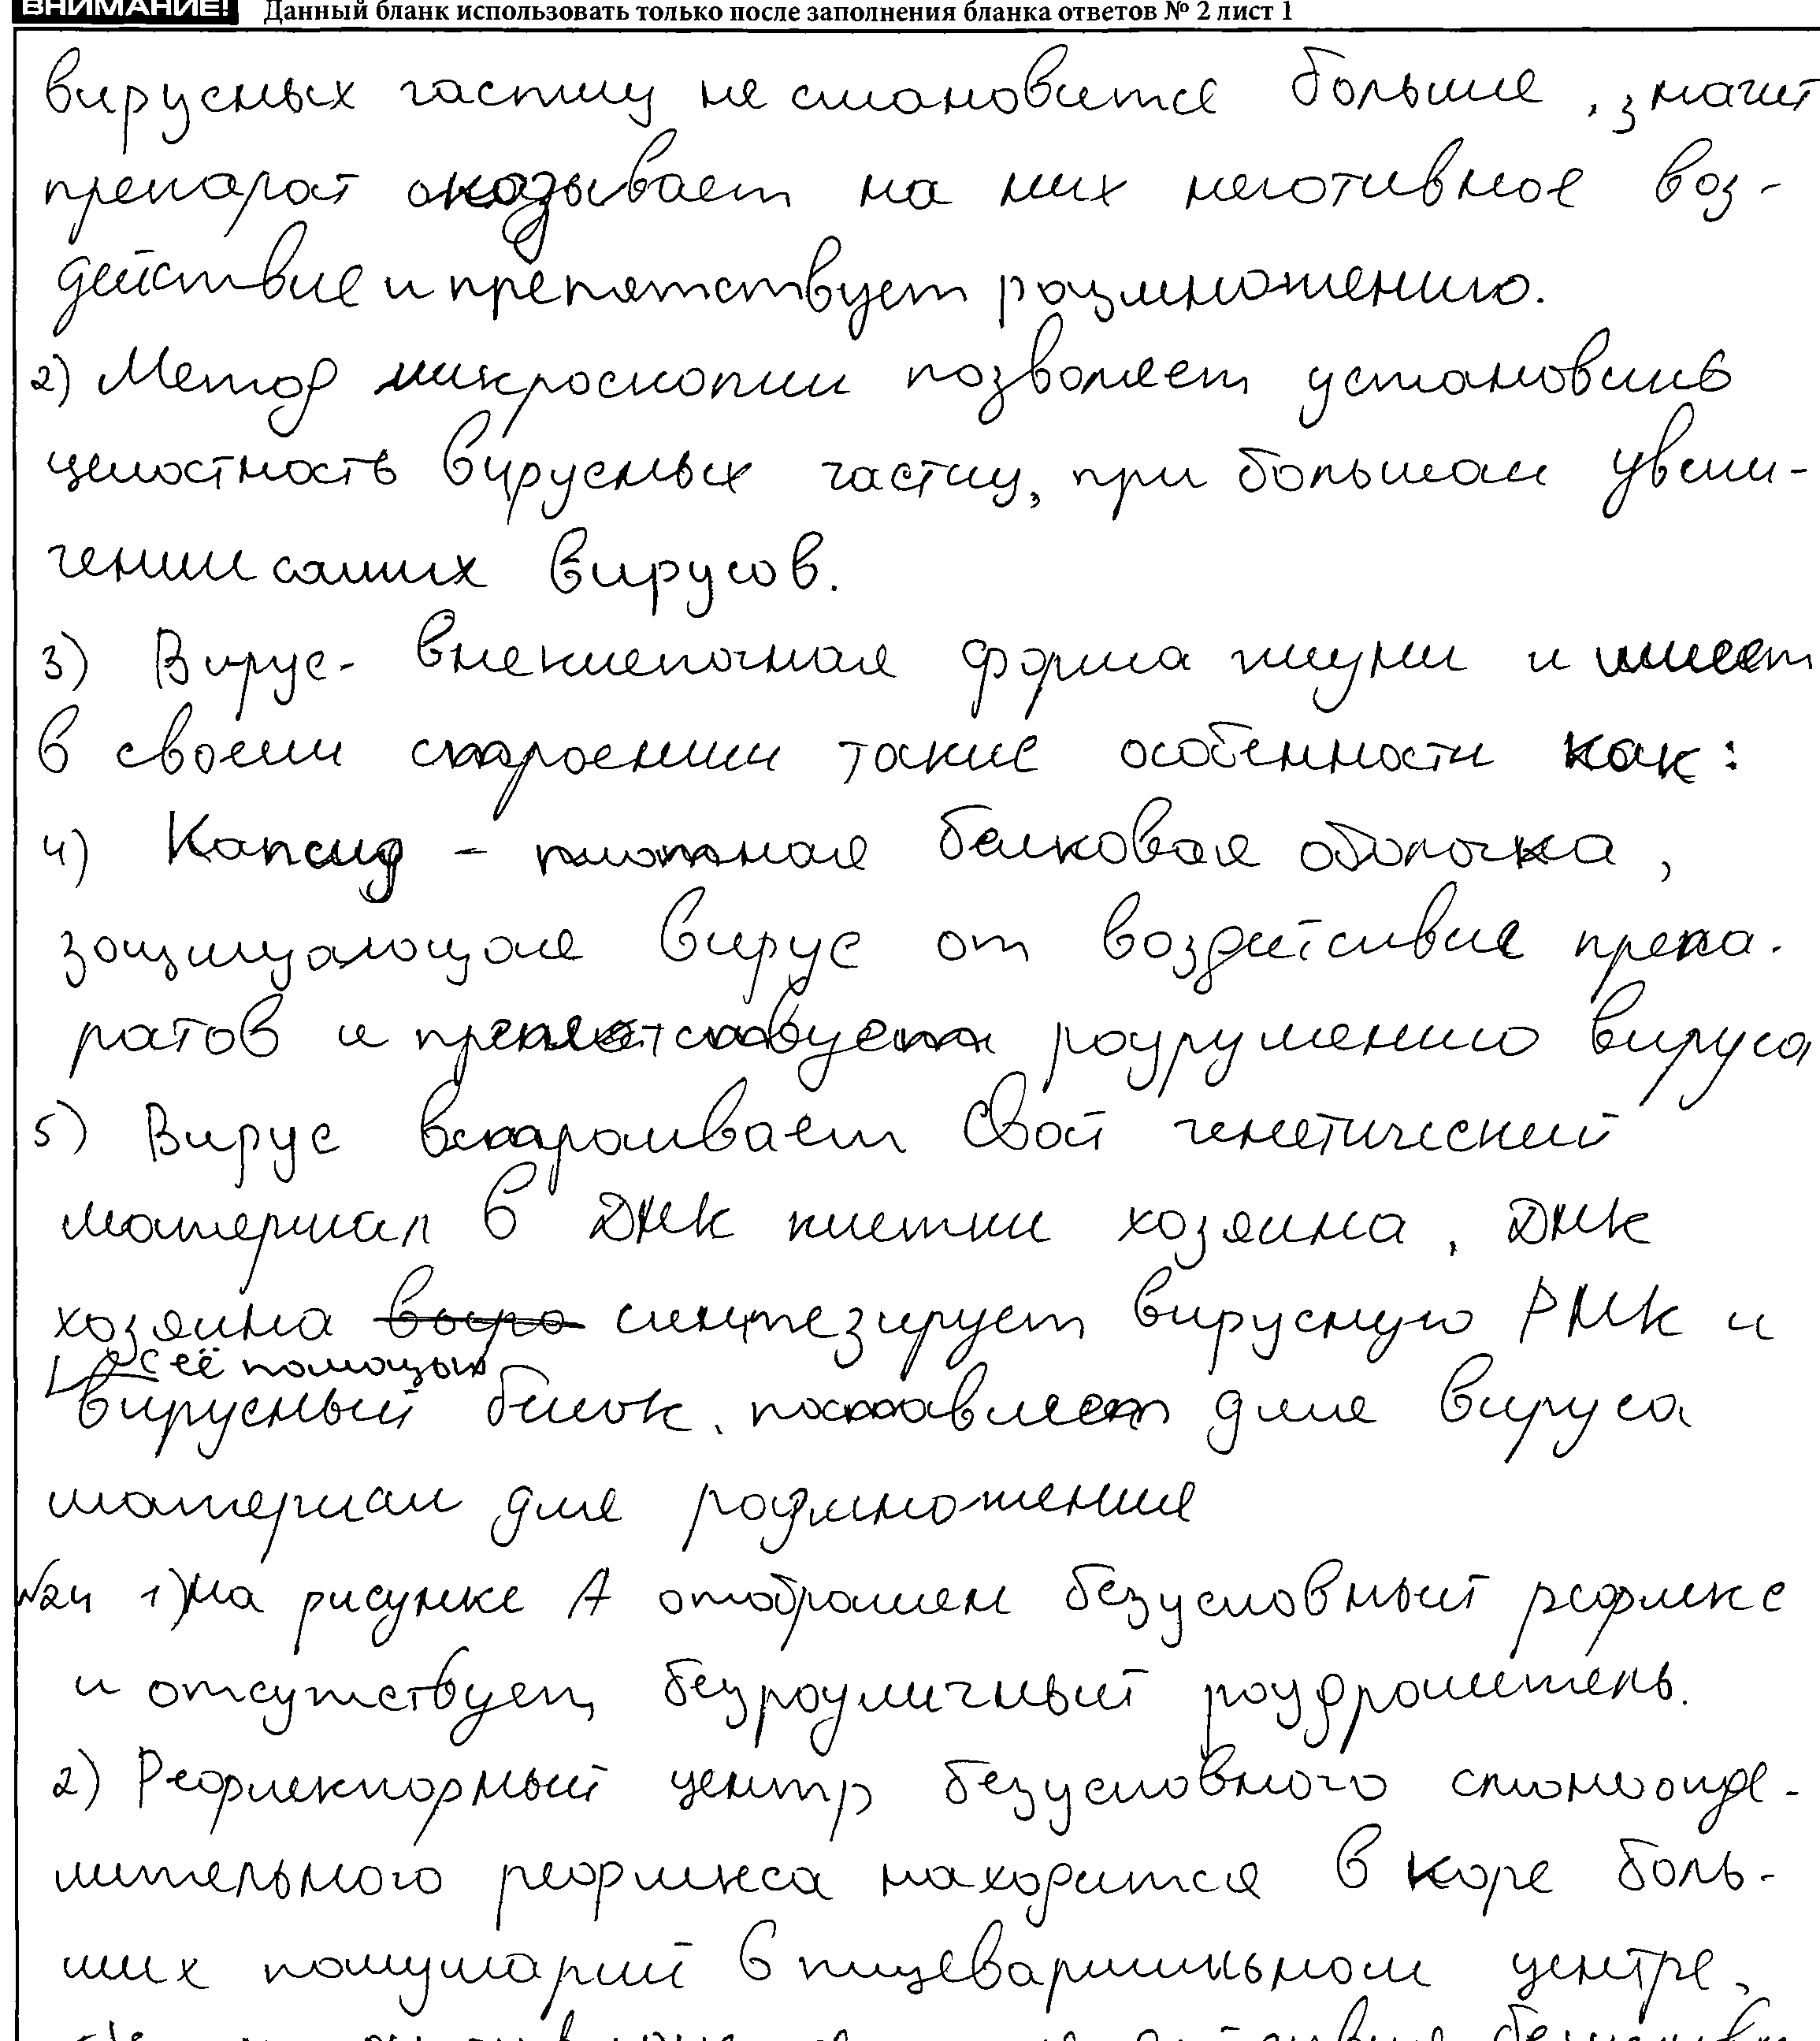 ВНИМАНИЕ! Данный бланк использовать только после заполнения бланка ответов № 2 лист 1
вирусных частиц не становится больше, значит
препарат оказывает на них негативное воз-
действие и препятствует размножению.
2) Метод микроскопии позволяет установить
целостность вирусных частиц, при большом увели-
чении самих вирусов.
3) Вирус - внеклеточная форма жизни и имеет
в своем строении такие особенности как:
4) Капсид - плотная белковая оболочка,
защищающая вирус от воздействия препа-
ратов и препятствует разрушению вируса
5) Вирус встраивает свой генетический
материал в ДНК клетки хозяина, ДНК
хозяина синтезирует вирусную РНК и
с её помощью
вирусный белок, поставляет для вируса
материал для размножения
№24 1) На рисунке А отображен безусловный рефлекс
и отсутствует безразличный раздражитель.
2) Рефлекторный центр безусловного слюноотде-
лительного рефлекса находится в коре боль-
ших полушарий в пищеварительном центре,